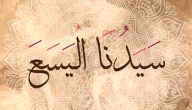 سَيِّدُنَا الْيَسَعَ